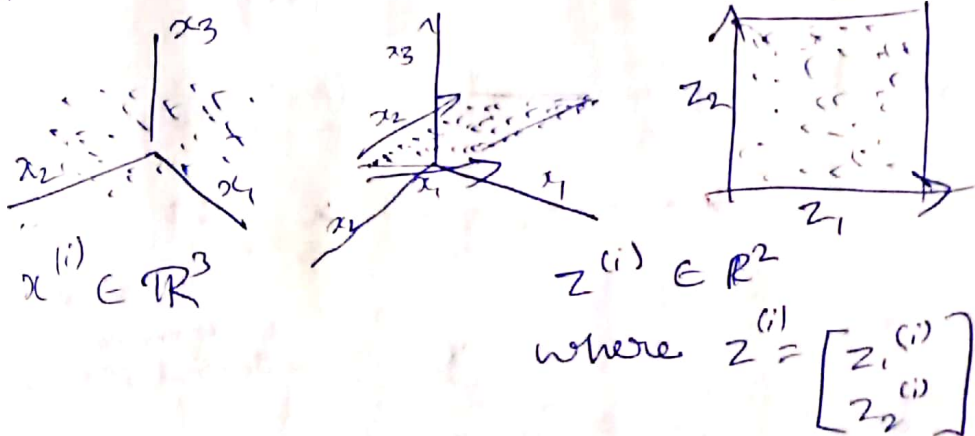 x3
x2
x1
x3
x2
x1
x1
x2
z2
z1
x^(i) ∈ ℝ^3
z^(i) ∈ ℝ^2
where z^(i) = [z1^(i)
z2^(i)]